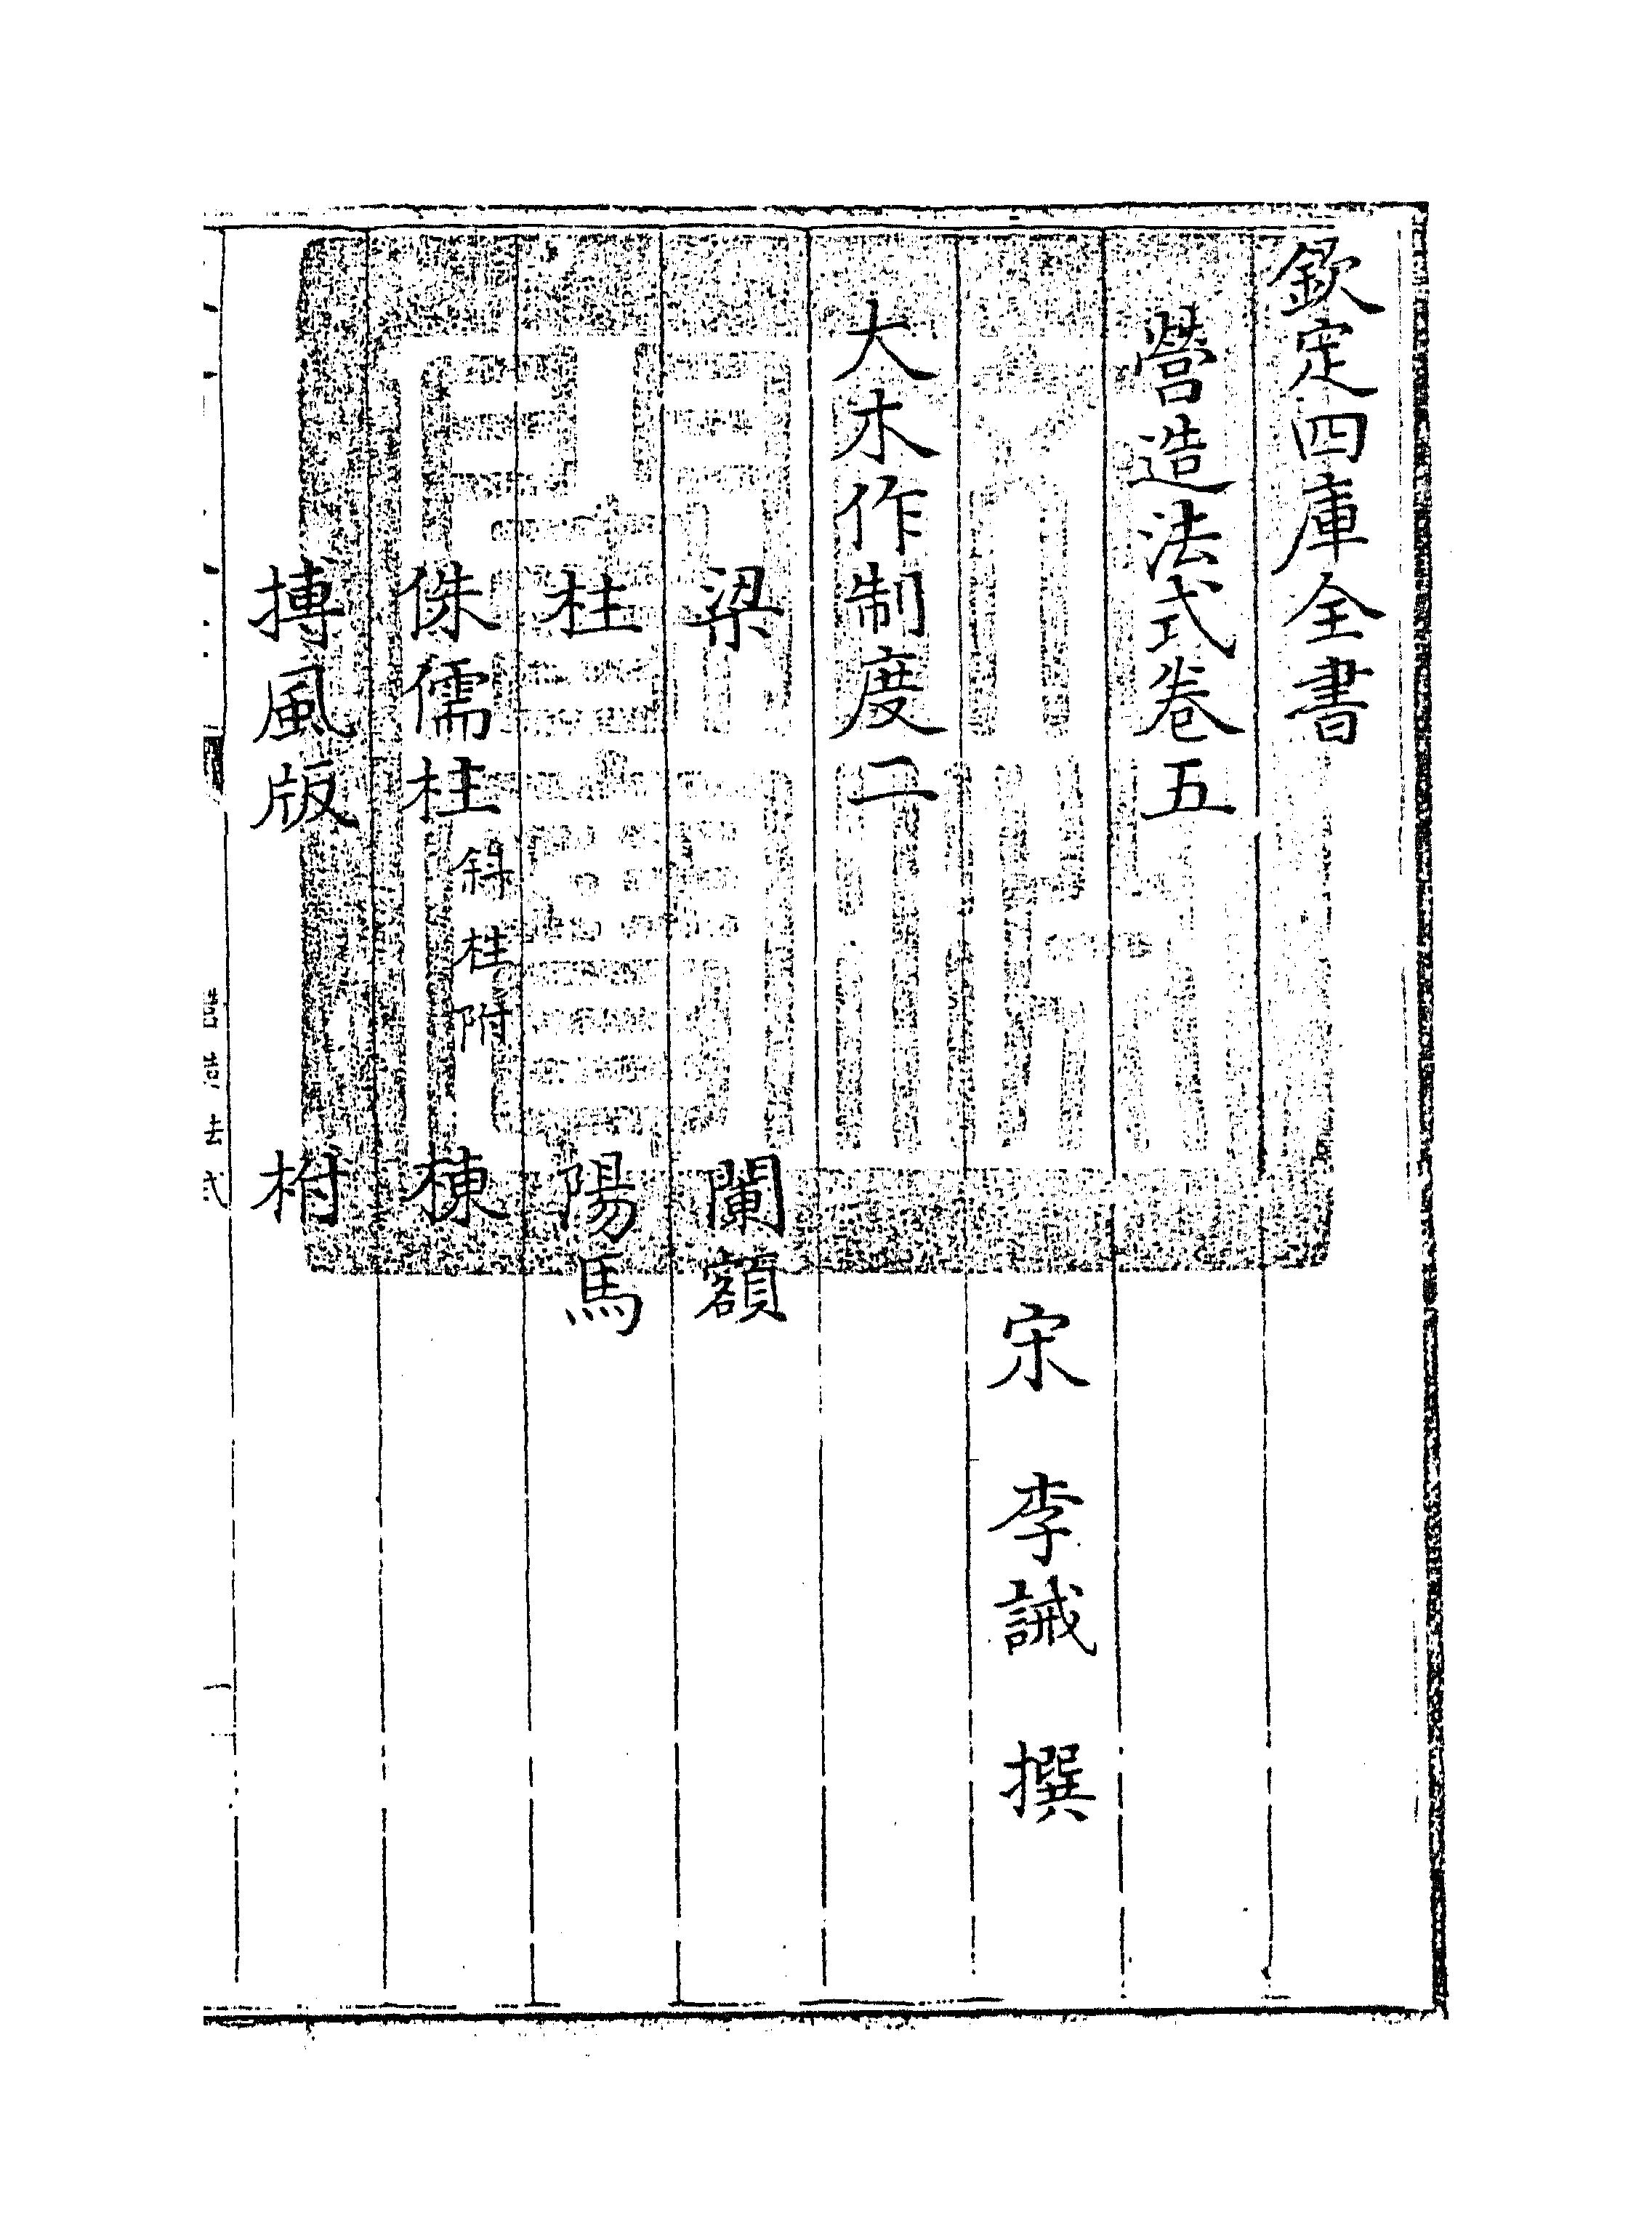 欽定四庫全書
營造法式卷五
宋 李誡 撰
大木作制度二
梁 闌額
柱 陽馬
侏儒柱 斜柱附 棟
搏風版 柎